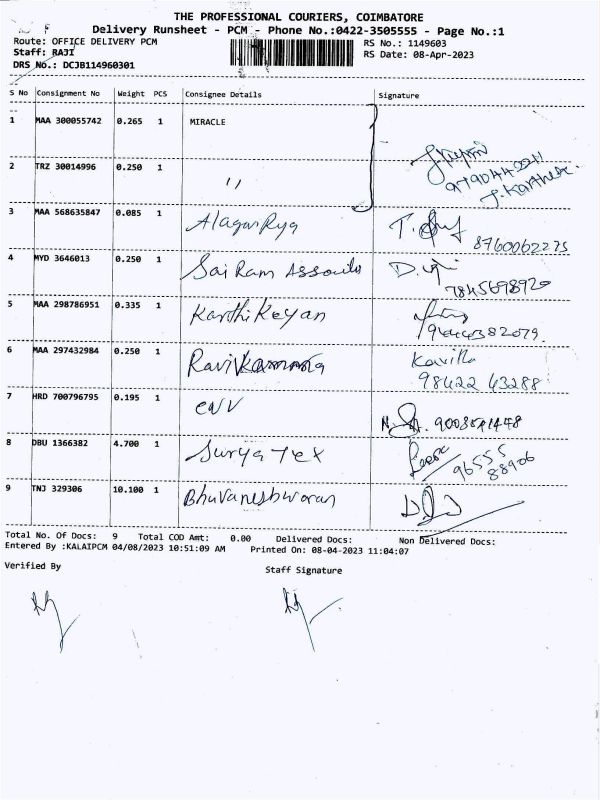 THE PROFESSIONAL COURIERS, COIMBATORE
Delivery Runsheet - PCM - Phone No.:0422-3505555 - Page No.:1
Route: OFFICE DELIVERY PCM
RS No.: 1149603
Staff: RAJI
RS Date: 08-Apr-2023
DRS No.: DCJB114960301
S No Consignment No Weight PCS Consignee Details Signature
1 MAA 300055742 0.265 1 MIRACLE
2 TRZ 30014996 0.250 1 ,,
J. Karthik
3 MAA 568635847 0.085 1 Alagar Rya
8760062275
4 MYD 3646013 0.250 1 Sai Ram
7845698920
5 MAA 298786951 0.335 1 Karthi Keyan
6 MAA 297432984 0.250 1 Kavilla
98422 43288
7 HRD 700796795 0.195 1 env
8 DBU 1366382 4.700 1 Surya Tex
96555
88906
9 TNJ 329306 10.100 1 Bhuvaneshwaran
Total No. Of Docs: 9 Total COD Amt: 0.00 Delivered Docs: Non Delivered Docs:
Entered By :KALAIPCM 04/08/2023 10:51:09 AM Printed On: 08-04-2023 11:04:07
Verified By
Staff Signature